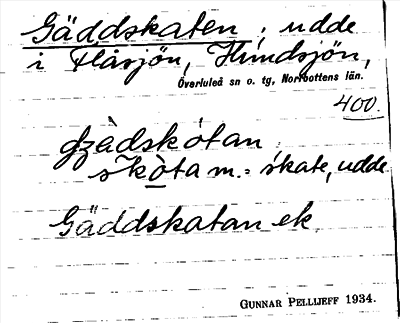 Gäddskaten, udde
i Flåsjön, Hundsjön,
Överluleå sn o. tg. Norrbottens län.
400.
skòta m. = skate, udde
Gäddskatan ek.
GUNNAR PELLIJEFF 1934.